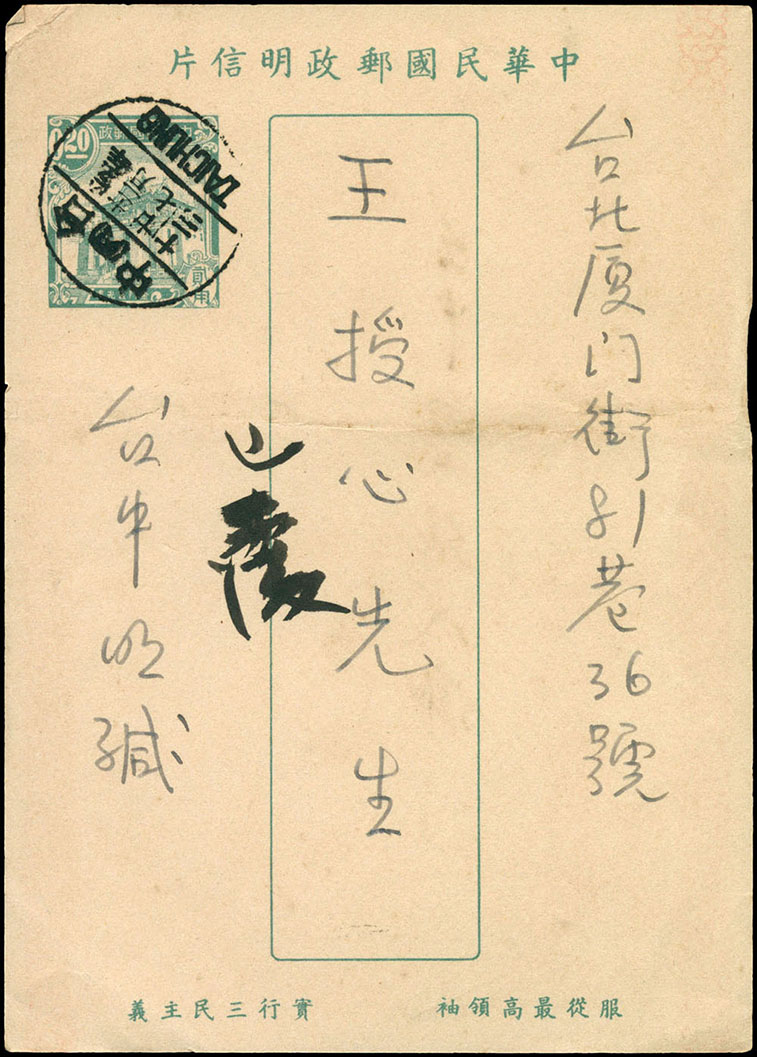 中華民國郵政明信片
0.20
貳角
台中
TAICHUNG
台北厦门街81巷36號
王授心先生
台中 缄
服從最高領袖
實行三民主義